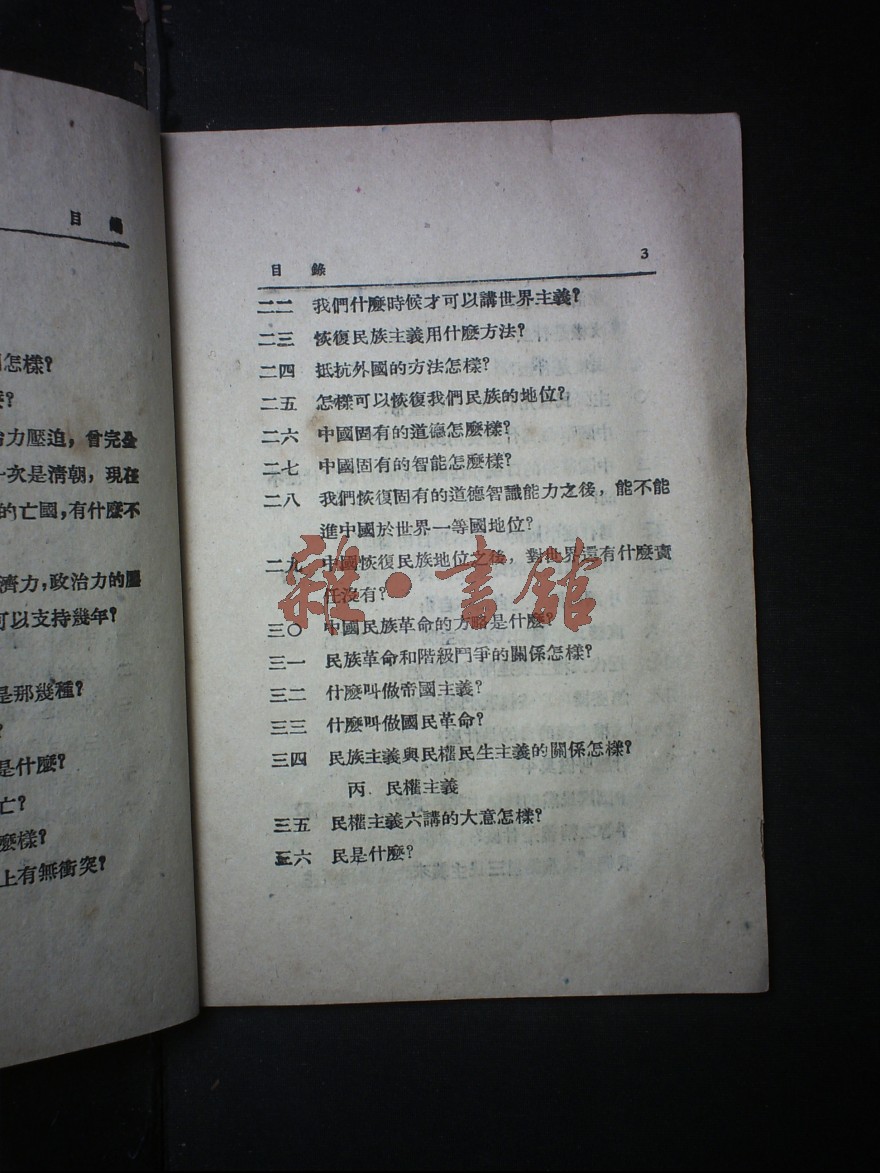 目 錄
們怎樣?
麼?
治力壓迫，曾完全
一次是淸朝，現在
的亡國，有什麼不
濟力，政治力的壓
可以支持幾年?
是那幾種?
?
是什麼?
亡?
麼樣?
上有無衝突?
目 錄 3
二二 我們什麼時候才可以講世界主義?
二三 恢復民族主義用什麼方法?
二四 抵抗外國的方法怎樣?
二五 怎樣可以恢復我們民族的地位?
二六 中國固有的道德怎麼樣?
二七 中國固有的智能怎麼樣?
二八 我們恢復固有的道德智識能力之後，能不能
進中國於世界一等國地位?
二九 中國恢復民族地位之後，對世界還有什麼責
任沒有?
三〇 中國民族革命的方略是什麼?
三一 民族革命和階級鬥爭的關係怎樣?
三二 什麼叫做帝國主義?
三三 什麼叫做國民革命?
三四 民族主義與民權民生主義的關係怎樣?
丙．民權主義
三五 民權主義六講的大意怎樣?
三六 民是什麼?
雜·書館